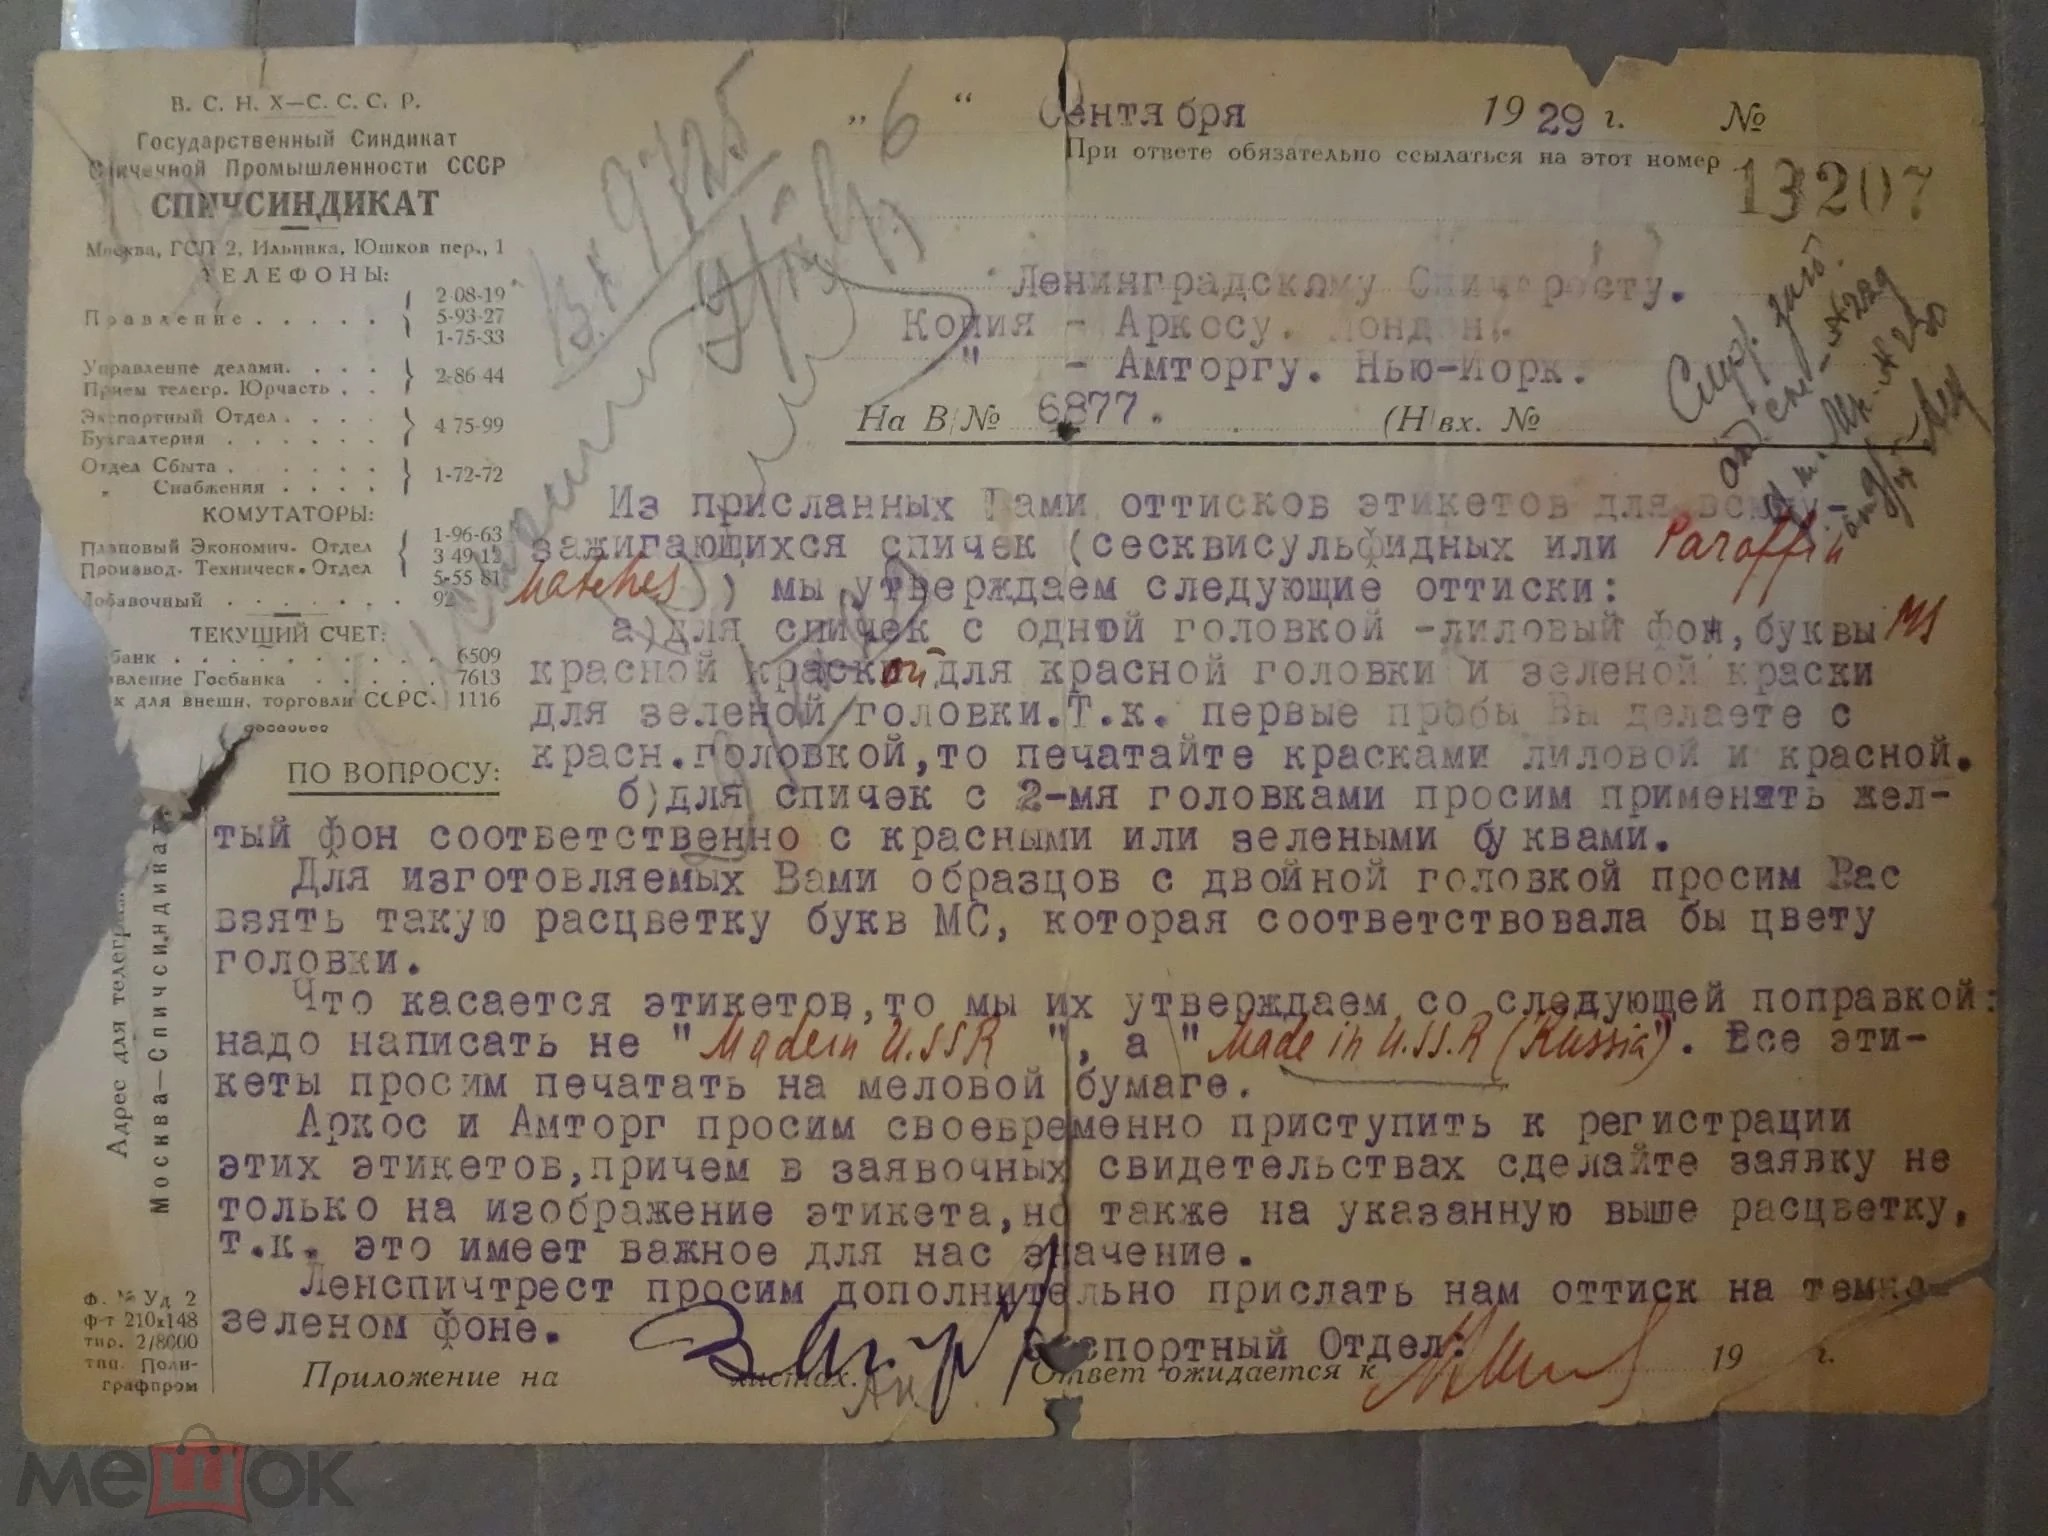 В. С. Н. Х—С. С. С. Р.
Государственный Синдикат
Спичечной Промышленности СССР
СПИЧСИНДИКАТ
Москва, ГСП 2, Ильинка, Юшков пер., 1
ТЕЛЕФОНЫ:
Правление . . . . . { 2-08-19
5-93-27
1-75-33
Управление делами. . . .
Прием телегр. Юрчасть . . } 2-86-44
Экспортный Отдел . . . .
Бухгалтерия . . . . . . } 4 75-99
Отдел Сбыта . . . . . .
" Снабжения . . . . } 1-72-72
КОМУТАТОРЫ:
Плановый Экономич. Отдел { 1-96-63
3 49-12
Производ. Техническ. Отдел 5-55 81
обавочный . . . . . . . 92
ТЕКУЩИЙ СЧЕТ:
банк . . . . . . . . . . 6509
вление Госбанка . . . . . 7613
к для внешн. торговли СССР. 1116
ПО ВОПРОСУ:
" 6 " Сентября 1929 г. №
При ответе обязательно ссылаться на этот номер 13207
Ленинградскому Спичтресту.
Копия - Аркосу. Лондон.
" - Амторгу. Нью-Йорк.
На В/№ 6877. (Н) вх. №
Из присланных Вами оттисков этикетов для всюду-
зажигающихся спичек (сесквисульфидных или Paraffin
Matches) мы утверждаем следующие оттиски:
а)для спичек с одной головкой -лиловый фон, буквы MS
красной краской для красной головки и зеленой краски
для зеленой головки.Т.к. первые пробы Вы делаете с
красн.головкой,то печатайте красками лиловой и красной.
б)для спичек с 2-мя головками просим применять жел-
тый фон соответственно с красными или зелеными буквами.
Для изготовляемых Вами образцов с двойной головкой просим Вас
взять такую расцветку букв МС, которая соответствовала бы цвету
головки.
Что касается этикетов,то мы их утверждаем со следующей поправкой:
надо написать не "Made in U.SSR", а "Made in U.SS.R (Russia)". Все эти-
кеты просим печатать на меловой бумаге.
Аркос и Амторг просим своевременно приступить к регистрации
этих этикетов,причем в заявочных свидетельствах сделайте заявку не
только на изображение этикета,но также на указанную выше расцветку,
т.к. это имеет важное для нас значение.
Ленспичтрест просим дополнительно прислать нам оттиск на темно-
зеленом фоне.
Экспортный Отдел:
Приложение на листах. Ответ ожидается к 19 г.
Адрес для телеграм
Москва—Спичсиндикат
Ф. № Уд 2
ф-т 210х148
тир. 2/8000
тип. Поли-
графпром
мешок